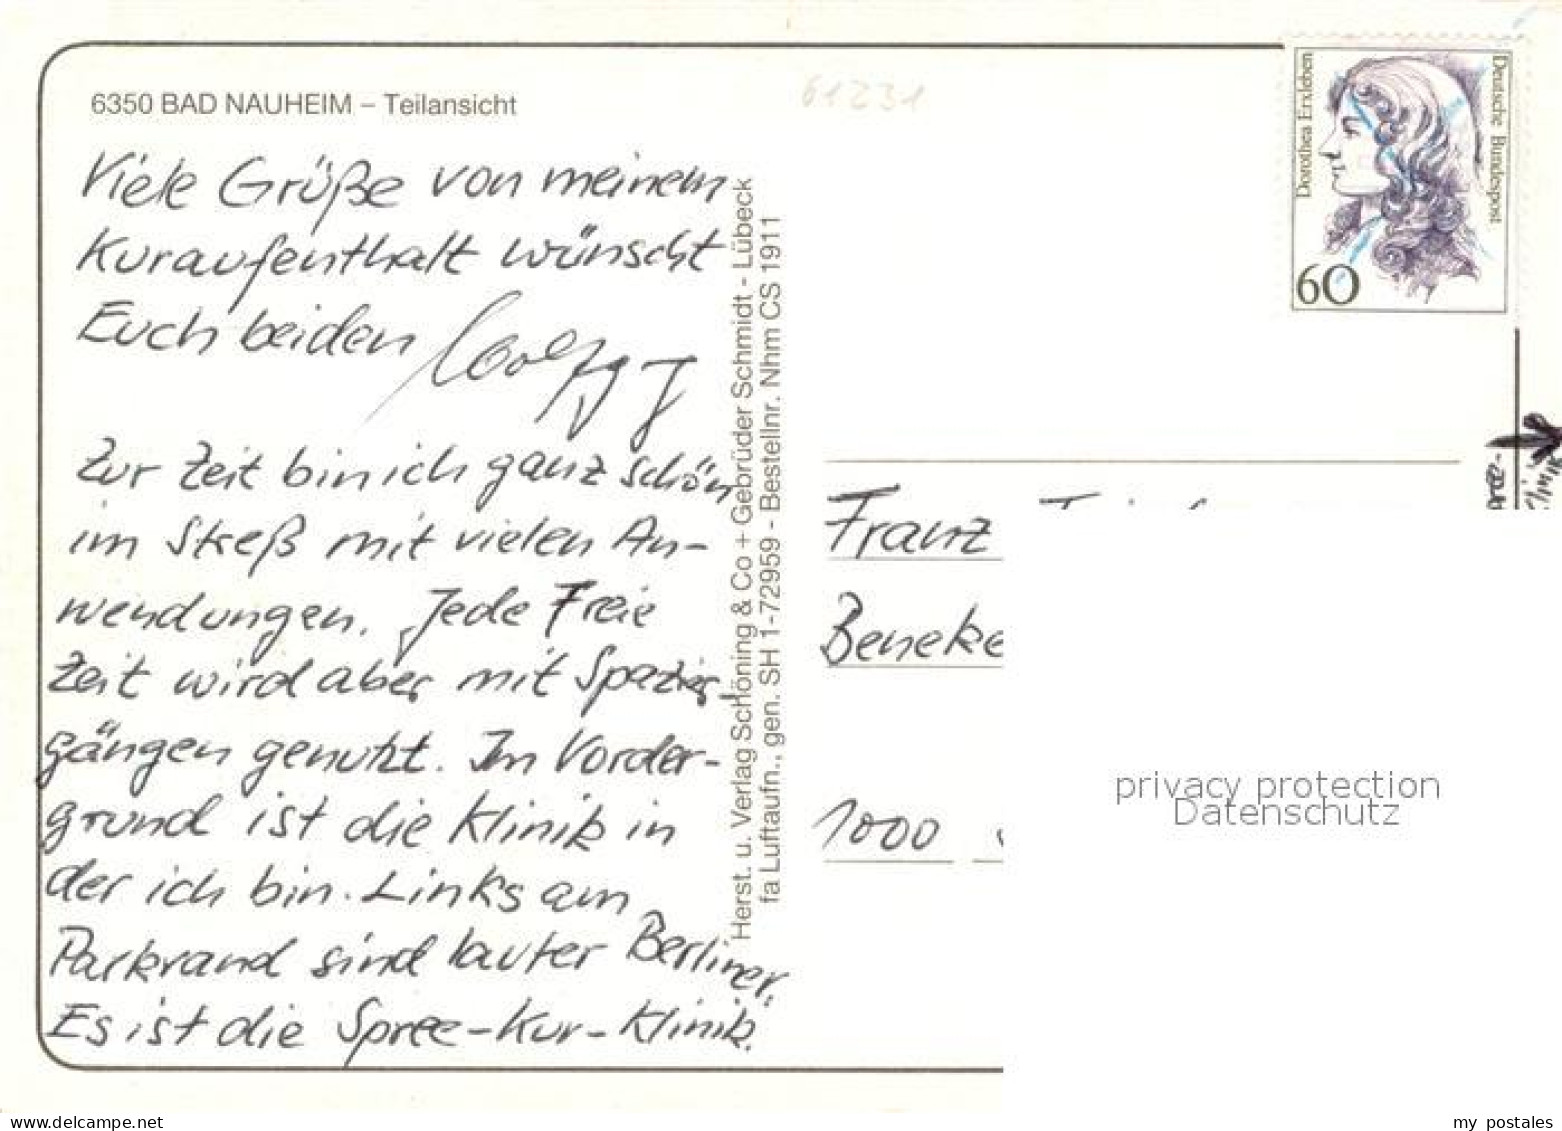 6350 BAD NAUHEIM – Teilansicht
61231
Viele Grüße von meinem
Kuraufenthalt wünscht
Euch beiden
Zur Zeit bin ich ganz schön
im Streß mit vielen An-
wendungen. Jede Freie
Zeit wird aber mit Spazier-
gängen genutzt. Im Vorder-
grund ist die Klinik in
der ich bin. Links am
Parkrand sind lauter Berliner.
Es ist die Spree-Kur-Klinik.
Herst. u. Verlag Schöning & Co + Gebrüder Schmidt - Lübeck
fa Luftaufn., gen. SH 1-72959 - Bestellnr. Nhm CS 1911
Dorothea Erxleben
Deutsche Bundespost
60
Franz
Beneke
1000
privacy protection
Datenschutz
my-postcard.eu
my postales